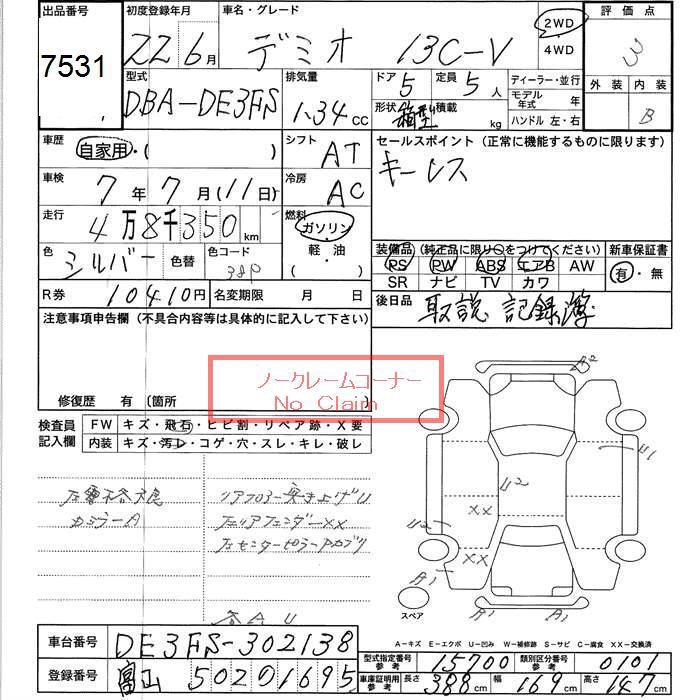 出品番号 初度登録年月 車名・グレード 2WD 評価点
7531 22 6月 デミオ 13C-V 4WD 3
型式 排気量 ドア 定員 ディーラー・並行 外装 内装
DBA-DE3FS 1.34CC 5 5人 モデル年式 年
形状 箱型 積載 kg ハンドル 左・右 B
車歴 自家用・( ) シフト AT セールスポイント (正常に機能するものに限ります)
車検 7年7月(11日) 冷房 AC キーレス
走行 4万8千350km 燃料 ガソリン
軽・油 装備品 (純正品に限り○をつけてください) 新車保証書
色 シルバー 色替 色コード 38P PS PW ABS エアB AW 有・無
SR ナビ TV カワ
R券 10410円 名変期限 月 日 後日品 取説 記録簿
注意事項申告欄 (不具合内容等は具体的に記入して下さい)
ノークレームコーナー
No Claim
修復歴 有 (箇所
検査員記入欄 FW キズ・飛石・ヒビ割・リペア跡・X要
内装 キズ・汚レ・コゲ・穴・スレ・キレ・破レ
リアフロアー突き上げU
カミラーA 左リアフェンダーXX
左センターピラーアカブリ
A2
U1
U2
XX
U2
XX
A1
スペア
A1 A1
A U
A-キズ E-エクボ U-凹み W-補修跡 S-サビ C-腐食 XX-交換済
車台番号 DE3FS-302138
型式指定番号 参考 15700 類別区分番号 参考 0101
登録番号 富山 502ロ1695
車庫証明用参考 長さ 388cm 幅 169cm 高さ 147cm